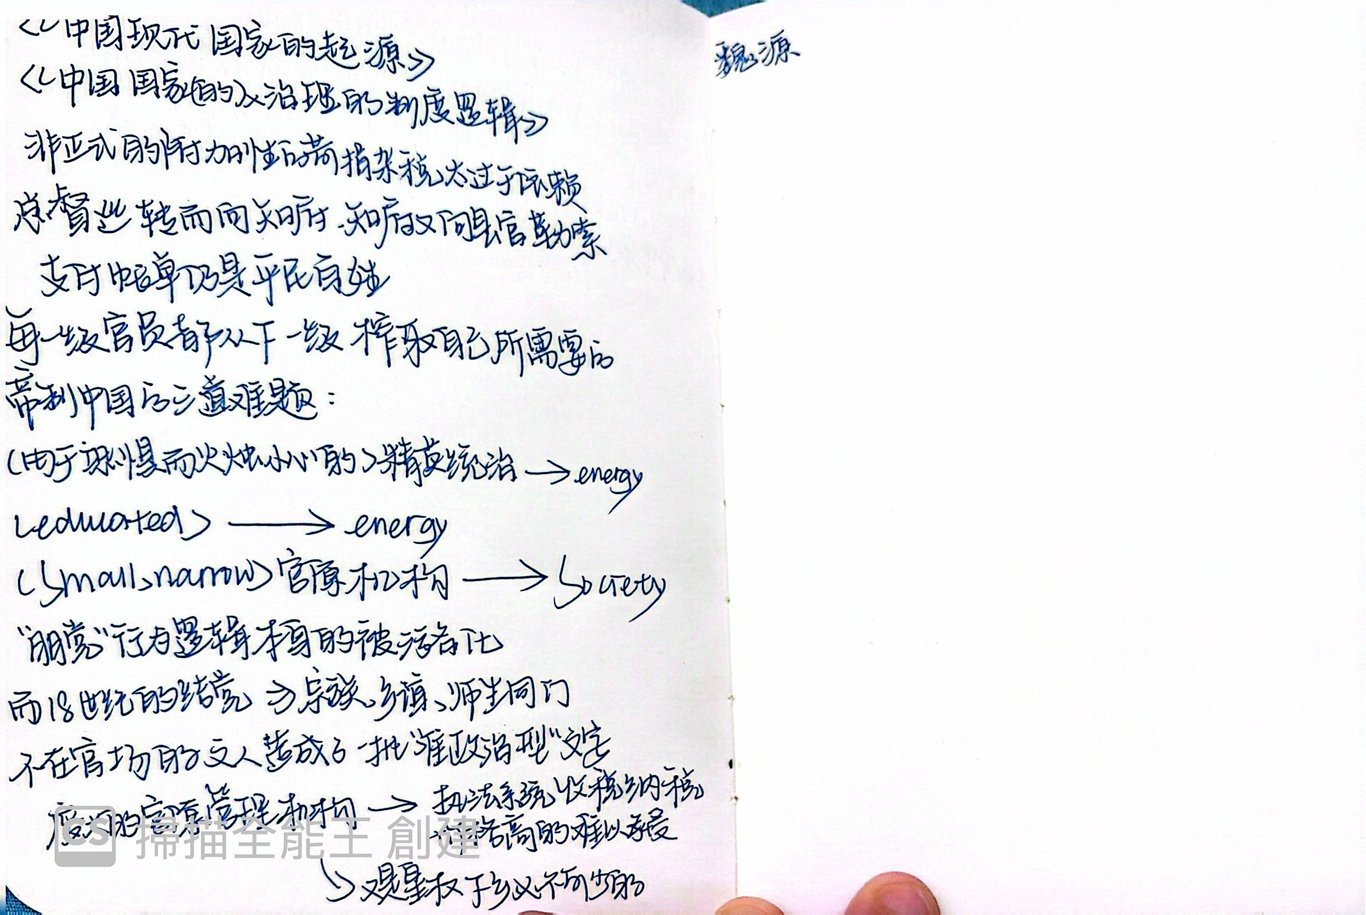 《中国现代国家的起源》
《中国国家的》治理的制度逻辑》
非正式的附加性的苛捐杂税太过于依赖
总督些转而向知府、知府又向县官勒索
支付帐单仍是平民百姓
每一级官员都从下一级榨取自己所需要的
帝制中国的三道难题：
(由于恐惧而火烛小心的)精英统治→energy
(educated)→energy
(Small, narrow)官僚机构→Society
"朋党"行为逻辑本身的被污名化
而18世纪的结党⇒宗族、乡谊、师生同门
不在官场的文人造成了一批"准政治型"文官
的官僚管理机构→执法系统收税纳税
高的难以承受
↳又是皇权下乡必不可少的
魏源
掃描全能王 創建